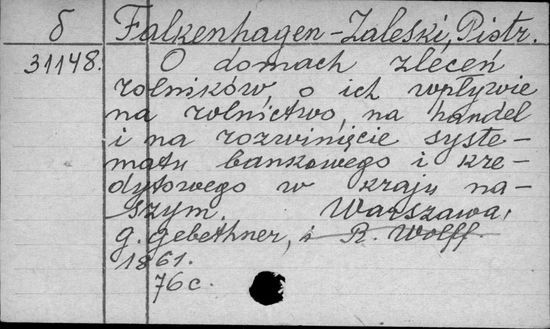 б Falkenhagen-Zaleski, Piotr.
31148. O domach zleceń
rolników, o ich wpływie
na rolnictwo, na handel
i na rozwinięcie syste-
matu bankowego i kre-
dytowego w kraju na-
szym. Warszawa,
g. gebethner, i R. Wolff.
1861.
76c.